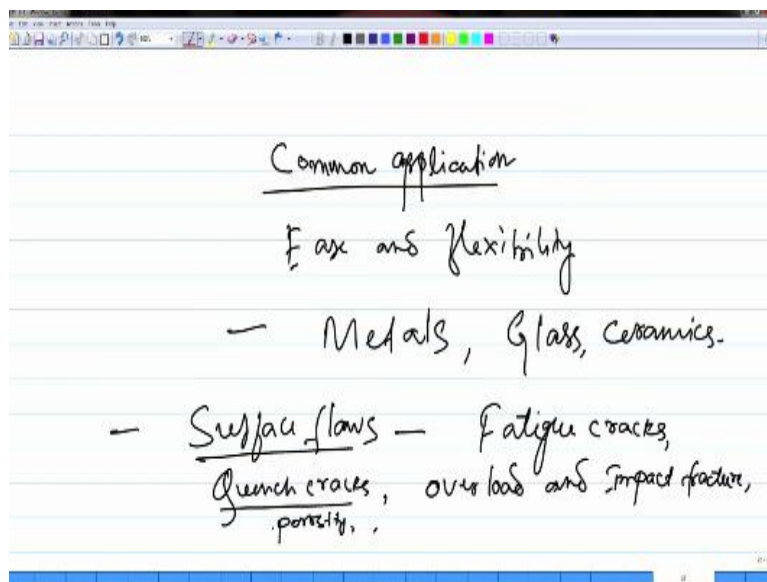 Common application
Ease and flexibility
- Metals, Glass, ceramics.
- Surface flaws - Fatigue cracks,
Quench cracks, overload and Impact fracture,
porosity, ,